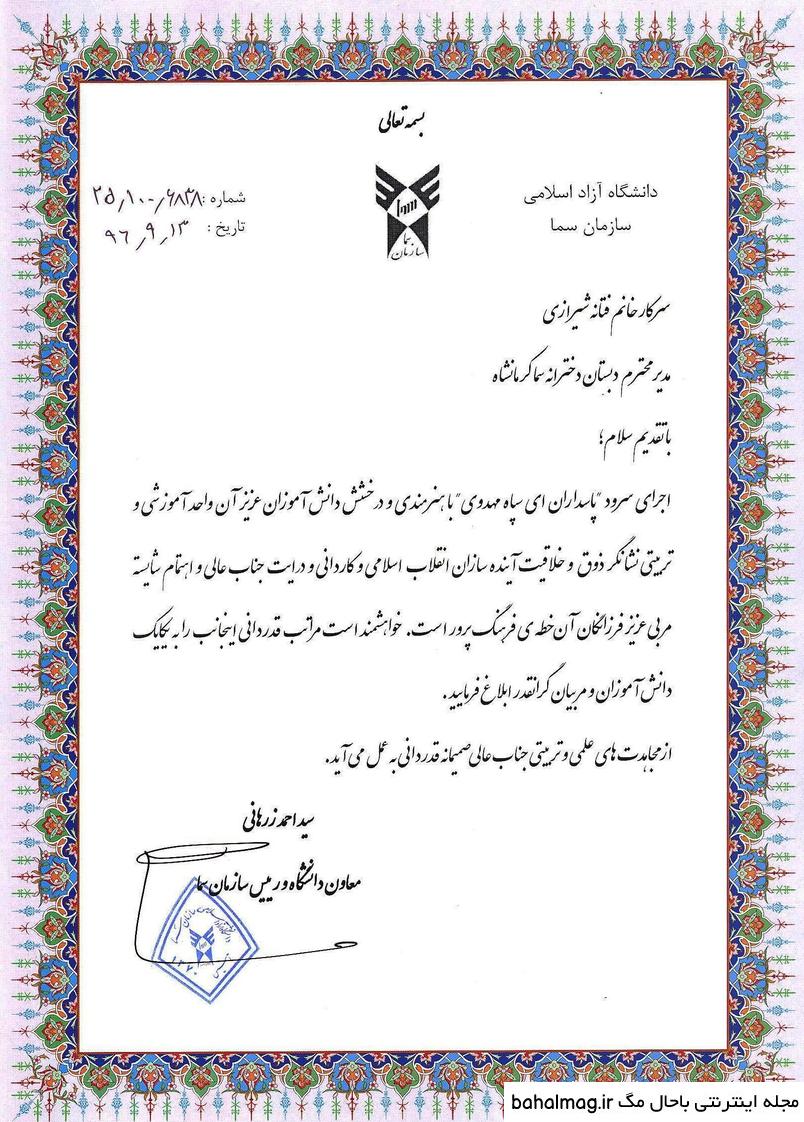 بسمه تعالی
دانشگاه آزاد اسلامی
سازمان سما
سما
سازمان
شماره: ۲۵٫۱۰۰٫۶۸۳۸
تاریخ: ۹۶٫۹٫۱۳
سرکار خانم فتانه شیرازی
مدیر محترم دبستان دخترانه سما کرمانشاه
با تقدیم سلام؛
اجرای سرود "پاسداران ای سپاه مهدوی" با هنرمندی و درخشش دانش آموزان عزیز آن واحد آموزشی و
تربیتی نشانگر ذوق و خلاقیت آینده سازان انقلاب اسلامی و کاردانی و درایت جناب عالی و اهتمام شایسته
مربی عزیز فرزانگان آن خطه ی فرهنگ پرور است. خواهشمند است مراتب قدردانی اینجانب را به یکایک
دانش آموزان و مربیان گرانقدر ابلاغ فرمایید.
از مجاهدت های علمی و تربیتی جناب عالی صمیمانه قدردانی به عمل می آید.
سید احمد زرهانی
معاون دانشگاه و رییس سازمان سما
مجله اینترنتی باحال مگ bahalmag.ir